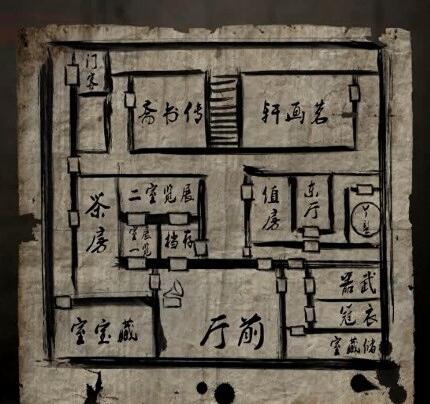 门客
传书斋
茗画轩
茶房
展览室二
展览室一
存档
值房
东厅
武器
衣冠
储藏室
前厅
藏宝室